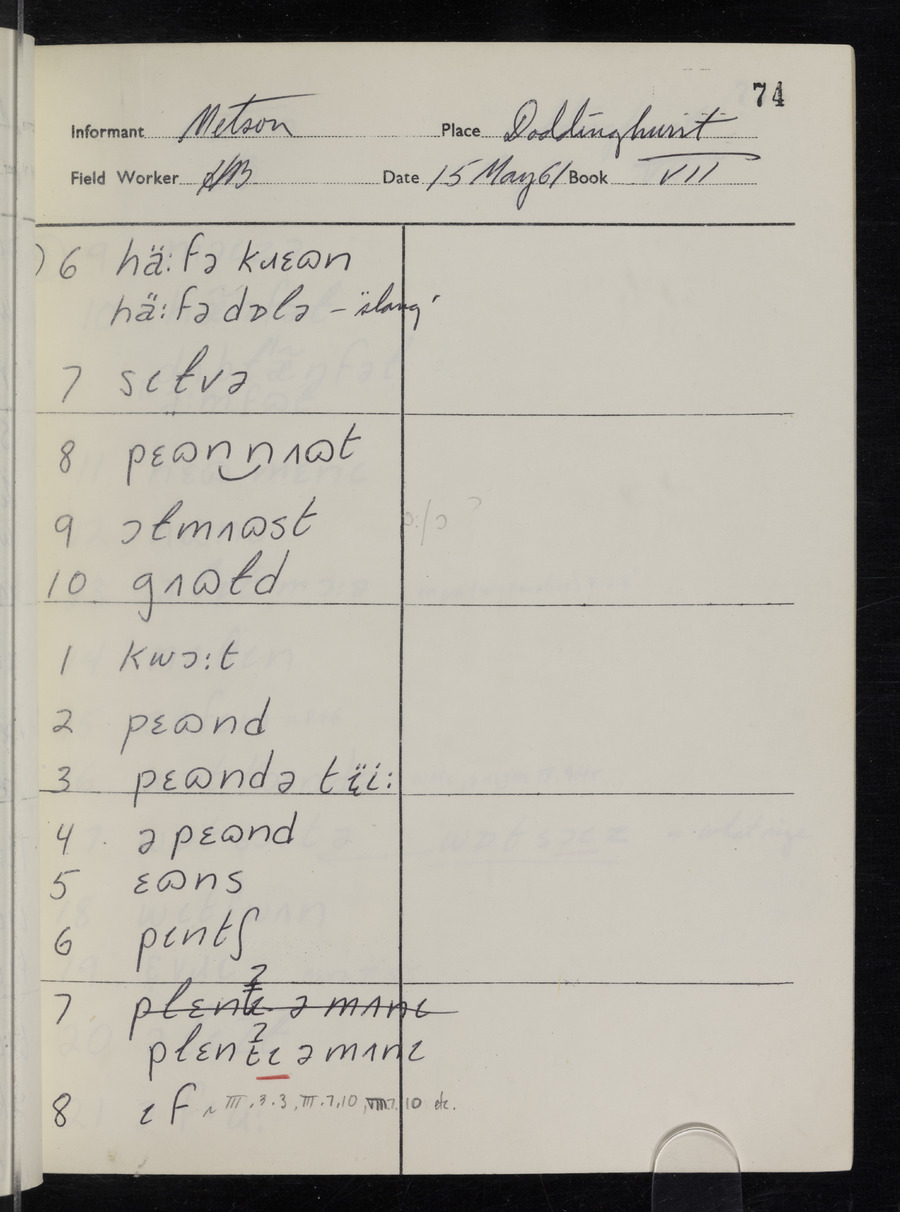 74
Informant Metson Place Doddinghurst
Field Worker HB Date 15 May 61 Book VII
) 6 hä:fə kɹɛɷn
hä:fə dɒlə – 'slang'
7 sɩɫvə
8 pɛɷn‿nʌɷt
9 ɔɫmʌɷst ɔ:/ɔ ?
10 gʌɷɫd
1 kwɔ:t
2 pɛɷnd
3 pɛɷnd ə tï̞i:
4 ə pɛɷnd
5 ɛɷns
6 pɩntʃ
7 plɛntɩ ə mʌnɩ
plɛnt̬ɩ ə mʌnɩ
8 ɩf ~ III.3.3, III.7.10, VIII.7.10 etc.